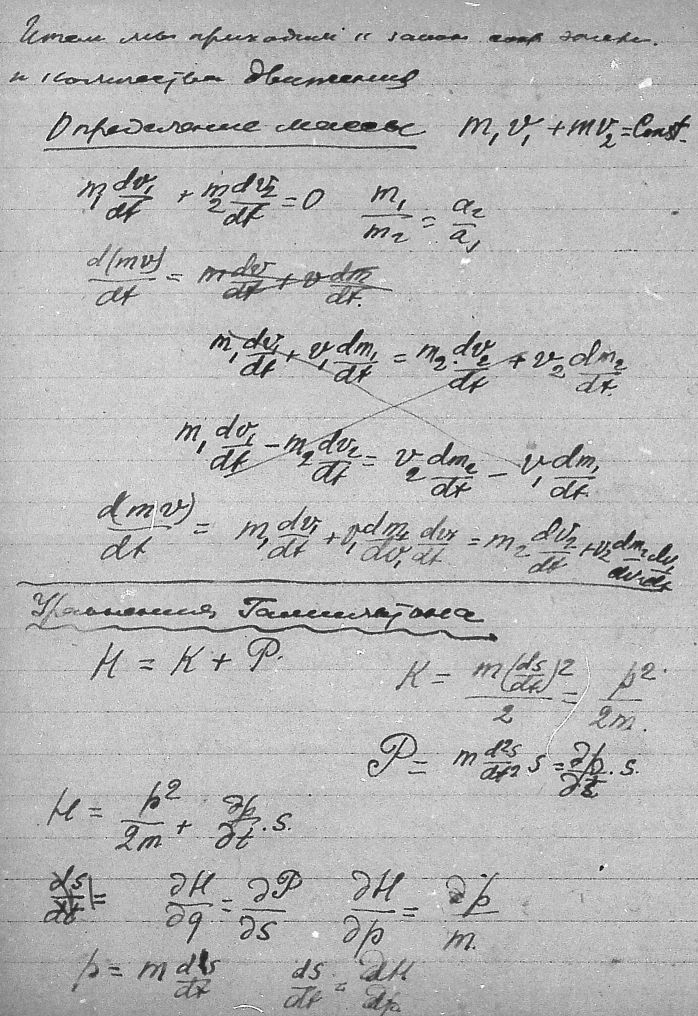 Итак мы приходим к закон сохр энерг.
и количества движения
Определение массы m₁v₁ + mv₂ = Const.
m₁ dv₁/dt + m₂ dv₂/dt = 0 m₁/m₂ = a₂/a₁
d(mv)/dt = m dv/dt + v dm/dt.
m₁ dv₁/dt + v₁ dm₁/dt = m₂ dv₂/dt + v₂ dm₂/dt.
m₁ dv₁/dt - m₂ dv₂/dt = v₂ dm₂/dt - v₁ dm₁/dt.
d(mv)/dt = m₁ dv₁/dt + v₁ dm₁/dv₁ dv₁/dt = m₂ dv₂/dt + v₂ dm₂/dv₁ dv₁/dt
Уравнения Гамильтона
H = K + P. K = m(ds/dt)²/2 = p²/2m.
P = m d²s/dt² s = ∂p/∂t · s.
H = p²/2m + ∂p/∂t · s.
ds/dt = ∂H/∂q = ∂P/∂s ∂H/∂p = p/m.
p = m ds/dt ds/dt = ∂H/∂p.